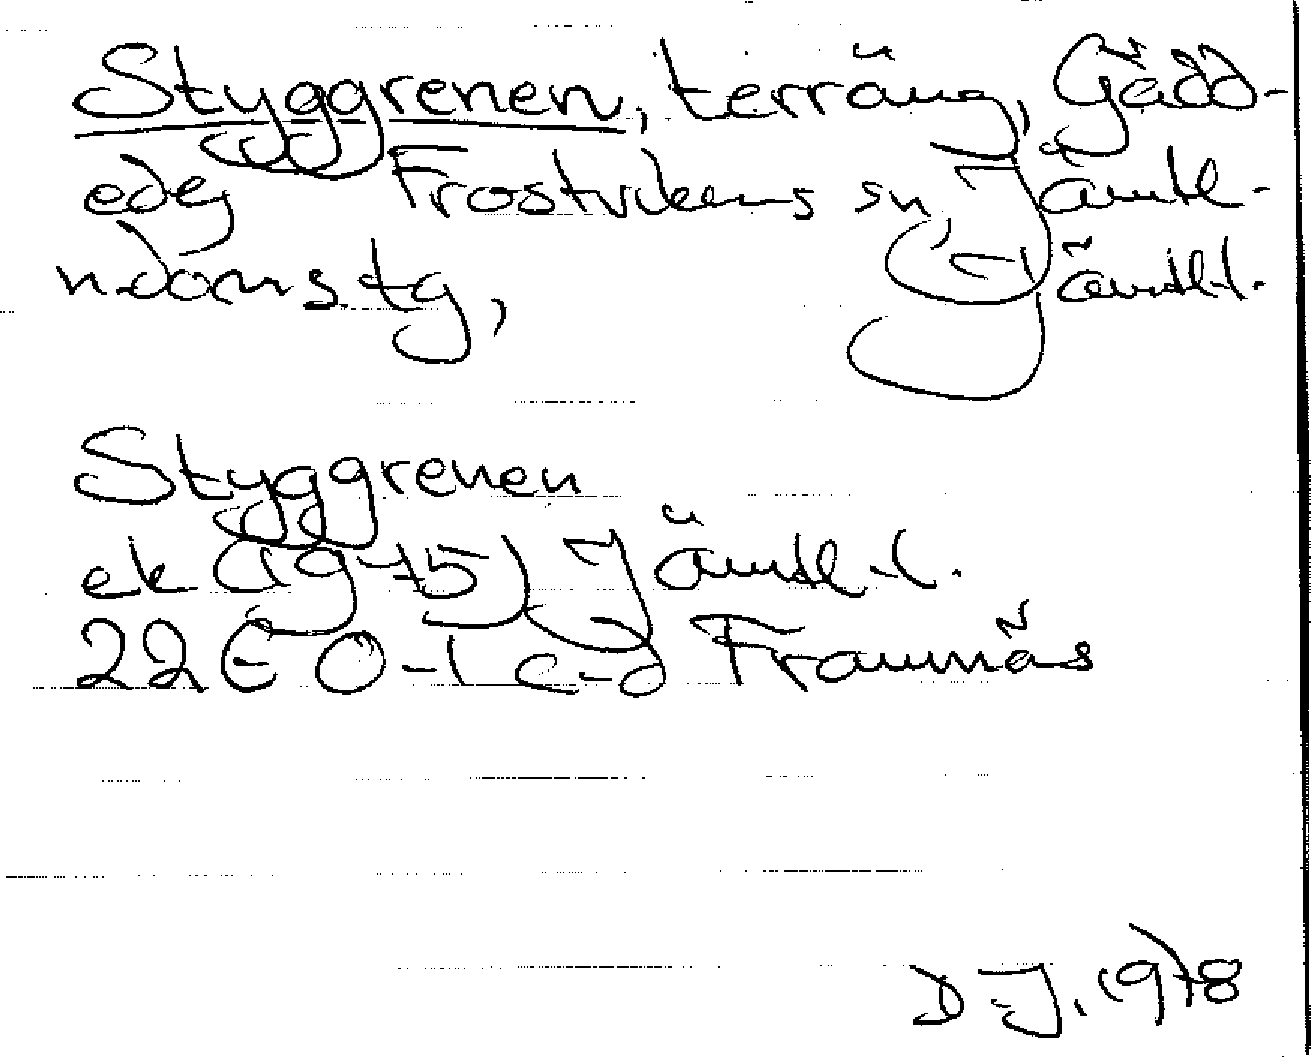 Styggrenen, terräng, Gädd-
edej Frostvikens sn, Jämtl-
n.domstg, Jämtl.l.
Styggrenen
ek (1975) Jämtl.l.
22E 0-1 c-d Framnäs
D-J. 1978